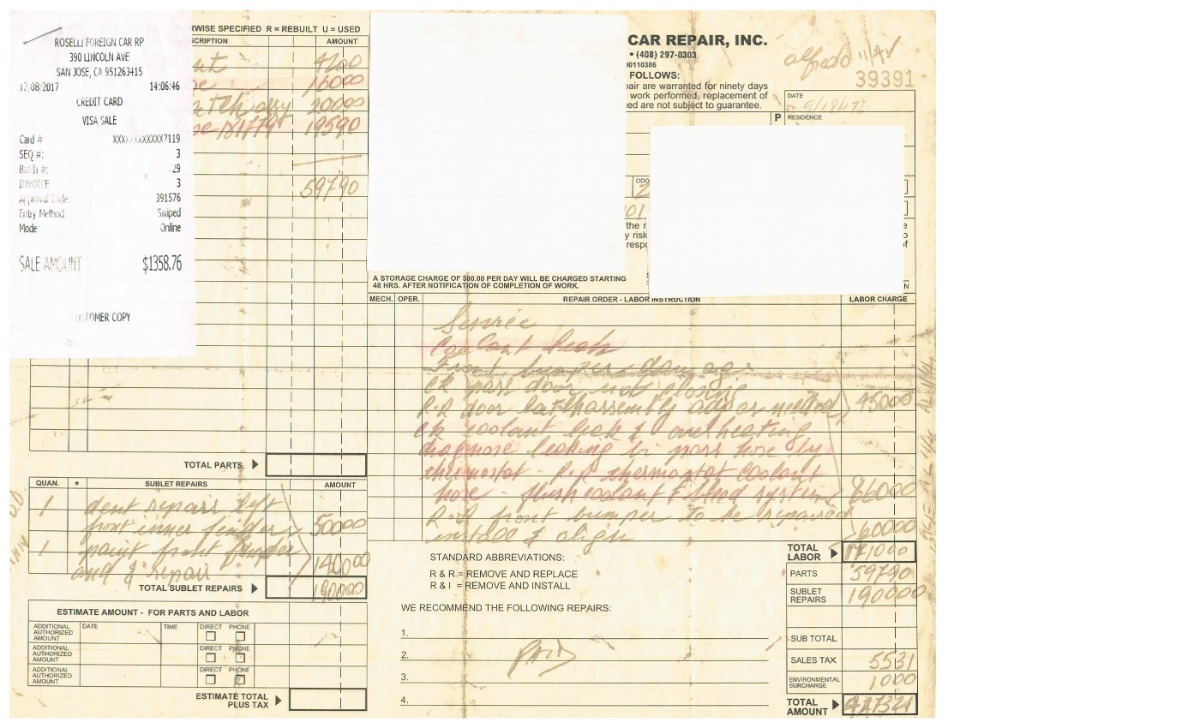 ROSELLI FOREIGN CAR RP
390 LINCOLN AVE
SAN JOSE, CA 951263415
12/08/2017 14:06:46
CREDIT CARD
VISA SALE
Card # XXXXXXXXXXXX7119
SEQ #: 3
Batch #: 29
INVOICE 3
Approval Code: 391576
Entry Method: Swiped
Mode: Online
SALE AMOUNT $1358.76
CUSTOMER COPY
RWISE SPECIFIED R = REBUILT U = USED
CRIPTION AMOUNT
4200
16000
20000
19590
59790
TOTAL PARTS
QUAN. * SUBLET REPAIRS AMOUNT
1 dent repair left
front inner fender 50000
1 paint front bumper
and repair 140000
TOTAL SUBLET REPAIRS 190000
ESTIMATE AMOUNT - FOR PARTS AND LABOR
ADDITIONAL AUTHORIZED AMOUNT DATE TIME DIRECT PHONE
ADDITIONAL AUTHORIZED AMOUNT DIRECT PHONE
ADDITIONAL AUTHORIZED AMOUNT DIRECT PHONE
ESTIMATE TOTAL
PLUS TAX
CAR REPAIR, INC.
• (408) 297-0303
00110386
FOLLOWS:
pair are warranted for ninety days
work performed, replacement of
ed are not subject to guarantee.
39391
DATE
P RESIDENCE
ODO
the r
y risk
respo
A STORAGE CHARGE OF $80.00 PER DAY WILL BE CHARGED STARTING
48 HRS. AFTER NOTIFICATION OF COMPLETION OF WORK.
MECH. OPER. REPAIR ORDER - LABOR INSTRUCTION LABOR CHARGE
Service
Coolant leak
Front bumper damage
ck pass door not closing
R&R door latch assembly 45000
ck coolant leak & overheating
diagnose leaking bi pass hose by
thermostat - R&R thermostat coolant
hose - flush coolant & bleed system 66000
R&R front bumper to be repaired
install & align 60000
STANDARD ABBREVIATIONS:
R & R = REMOVE AND REPLACE
R & I = REMOVE AND INSTALL
WE RECOMMEND THE FOLLOWING REPAIRS:
1.
2. PAID
3.
4.
TOTAL LABOR 171000
PARTS 59790
SUBLET REPAIRS 190000
SUB TOTAL
SALES TAX 5531
ENVIRONMENTAL SURCHARGE 1000
TOTAL AMOUNT 427321